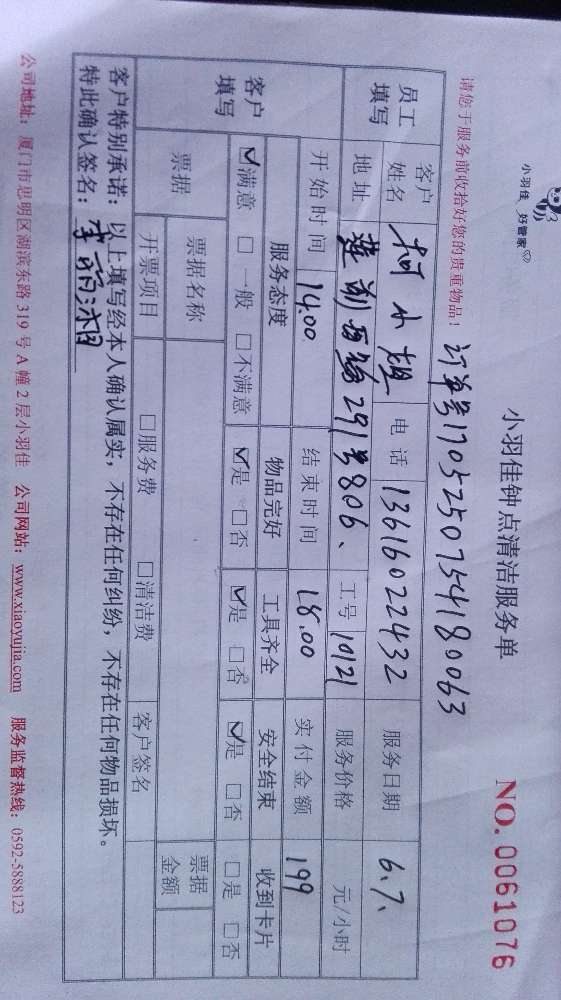 小羽佳 好管家
小羽佳钟点清洁服务单
NO. 0061076
请您于服务前收拾好您的贵重物品！ 订单号1705250754180063
员工填写 客户姓名 柯小姐 电话 13616022432 服务日期 6.7.
地址 莲前西路291号806、 工号 10121 服务价格 元/小时
客户填写 开始时间 14.00 结束时间 18.00 实付金额 199
服务态度 物品完好 工具齐全 安全结束 收到卡片
☑满意 □一般 □不满意 ☑是 □否 ☑是 □否 ☑是 □否 □是 □否
票据 票据名称 票据金额
开票项目 □服务费 □清洁费 客户签名
客户特别承诺：以上填写经本人确认属实，不存在任何纠纷，不存在任何物品损坏。
特此确认签名：
公司地址：厦门市思明区湖滨东路319号A幢2层小羽佳 公司网站：www.xiaoyujia.com 服务监督热线：0592-5888123